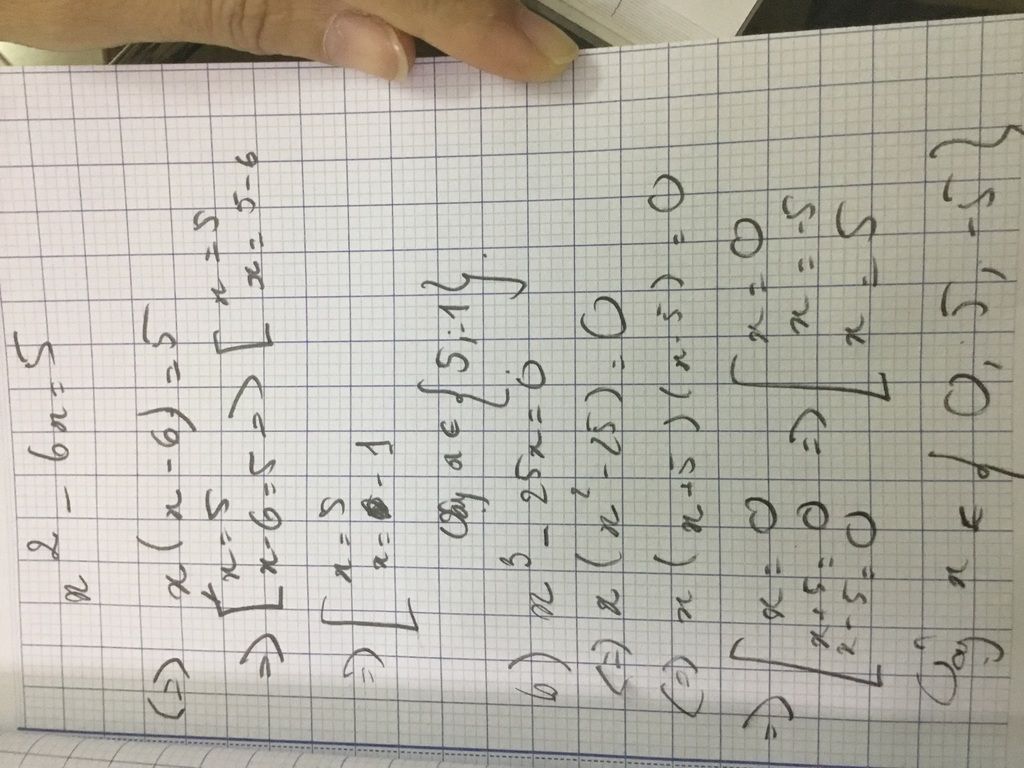 x² - 6x = 5
(=) x(x-6) = 5
=> [ x = 5
x-6 = 5 => [ x = 5
x = 5-6
=> [ x = 5
x = -1
Vậy x ∈ {5;-1}
b) x³ - 25x = 0
(=) x(x² - 25) = 0
(=) x(x+5)(x-5) = 0
=> [ x = 0
x+5 = 0
x-5 = 0 => [ x = 0
x = -5
x = 5
Vậy x ∈ { 0, 5, -5 }